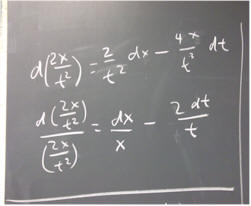 d(2x/t²) = 2/t² dx − 4x/t³ dt
d(2x/t²)/(2x/t²) = dx/x − 2dt/t